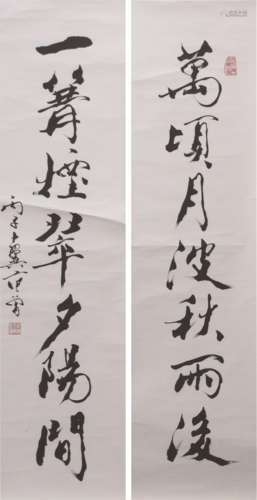 萬頃月波秋雨後
一篝煙翠夕陽間
丙子